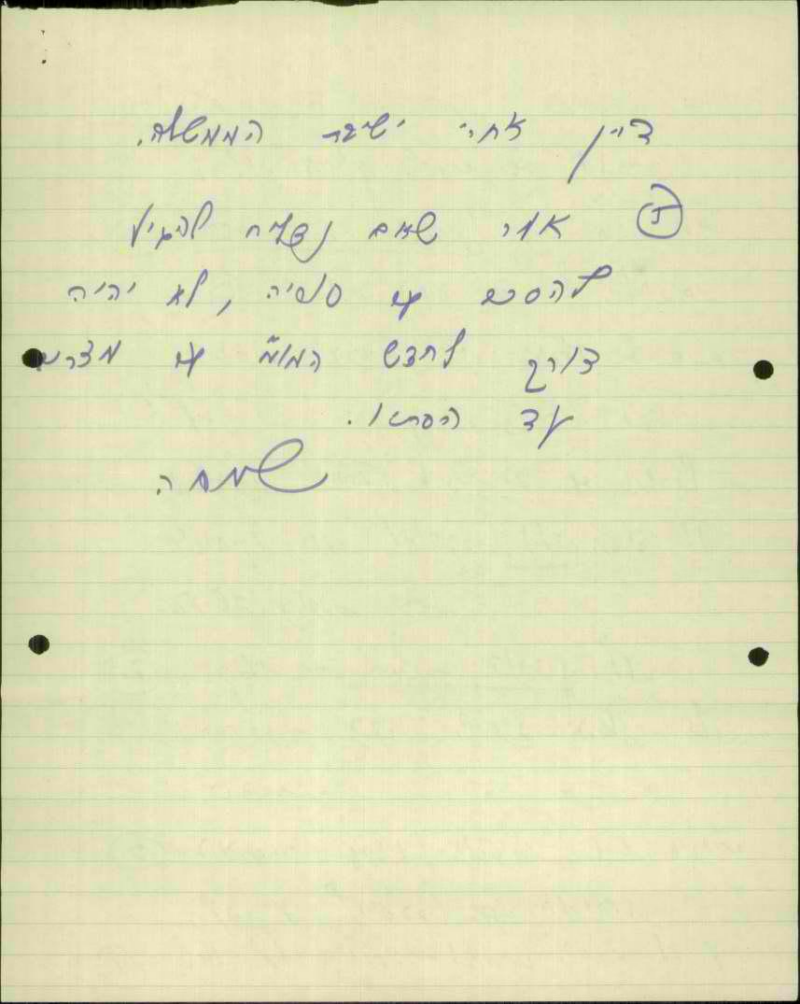 דיין אחרי ישיבת הממשלה.
ה) אמר שאם נצליח להגיע
להסכם עם סוריה, לא יהיה
צורך לחדש המו"מ עם מצרים
עד הסתיו.
שמחה